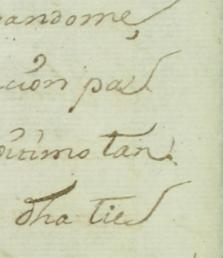 andome
cion pa
itimo tan
dha tie